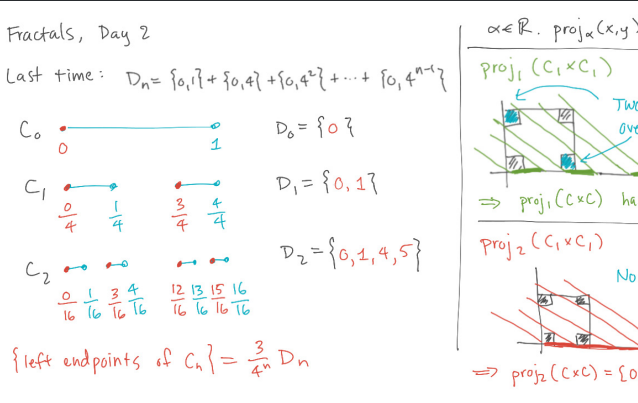 Fractals, Day 2
Last time: Dn = {0,1} + {0,4} + {0,4²} + ... + {0,4ⁿ⁻¹}
C₀ 0 1 D₀ = {0}
C₁ 0/4 1/4 3/4 4/4 D₁ = {0,1}
C₂ 0/16 1/16 3/16 4/16 12/16 13/16 15/16 16/16 D₂ = {0,1,4,5}
{left endpoints of Cn} = 3/4ⁿ Dn
α∈ℝ. projα(x,y)
proj₁(C₁×C₁)
Two
ove
⇒ proj₁(C×C) ha
proj₂(C₁×C₁)
No
⇒ proj₂(C×C) = {0